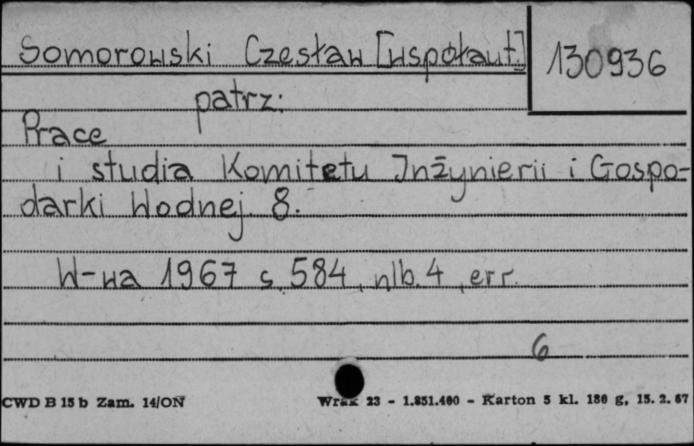 Somorowski Czesław [współaut]
130936
patrz:
Prace
i studia Komitetu Inżynierii i Gospo-
darki Wodnej. 8.
W-wa 1967 s. 584, nlb. 4, err.
6
CWD B 15 b Zam. 14/ON
Wrak 23 - 1.851.400 - Karton 5 kl. 180 g, 15. 2. 67